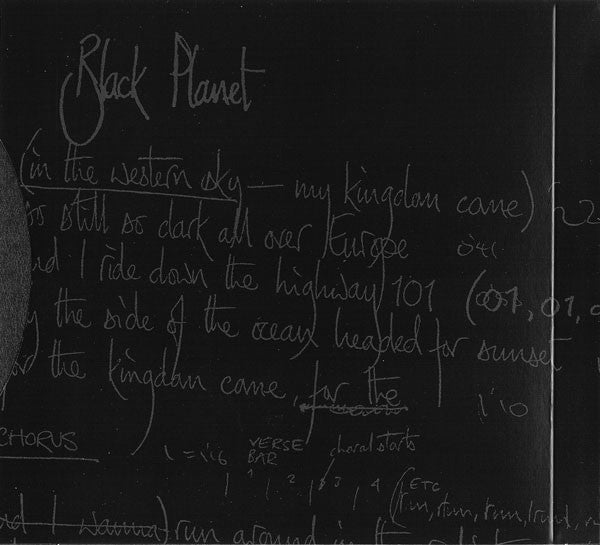 Black Planet
(in the western sky — my kingdom come)
so still so dark all over Europe
I ride down the highway 101 (01, 01,
the side of the ocean headed for sunset
the kingdom come, for the
1'10
CHORUS
VERSE
BAR
choral starts
1 2 3 4 (ETC
run, run, run,
I wanna) run around in the